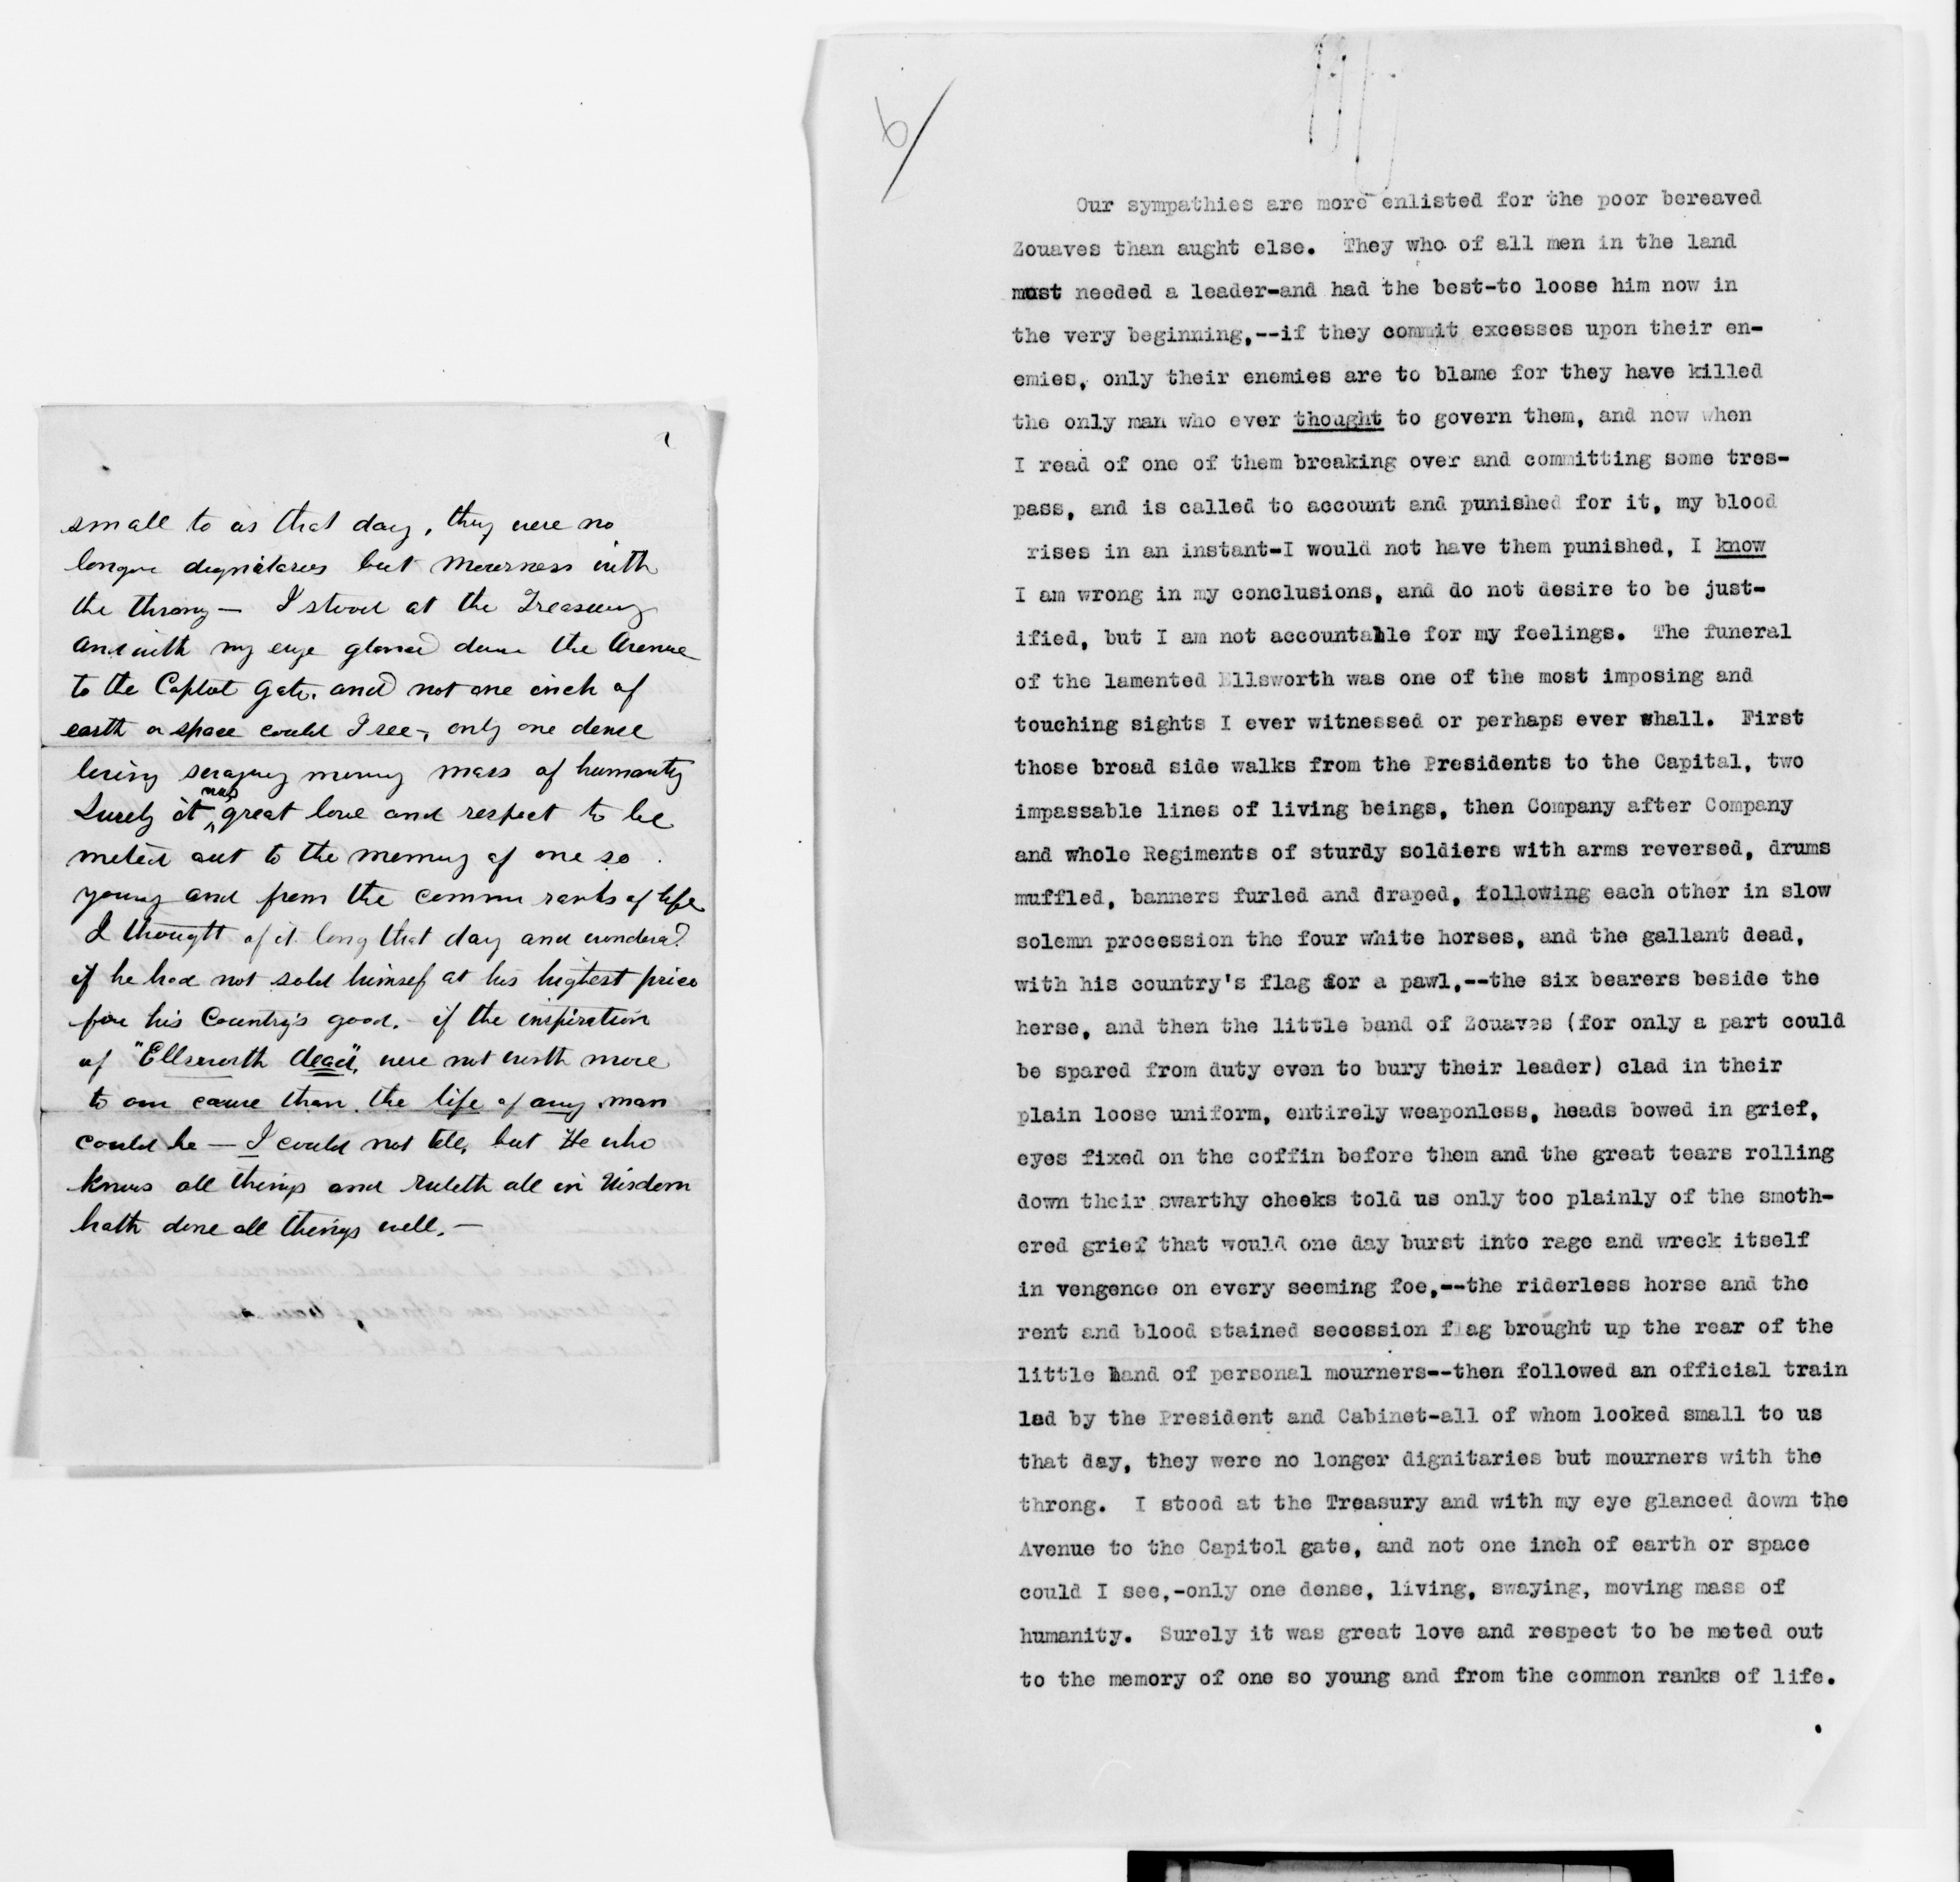 small to us that day, they were no
longer dignitaries but mourners with
the throng — I stood at the Treasury
and with my eye glanced down the Avenue
to the Capitol gate, and not one inch of
earth or space could I see, only one dense
living swaying moving mass of humanity
Surely it was great love and respect to be
meted out to the memory of one so
young and from the common ranks of life
I thought of it long that day and wondered
if he had not sold himself at his highest price
for his Country's good. - if the inspiration
of "Ellsworth dead", were not worth more
to our cause than the life of any man
could be — I could not tell, but He who
knows all things and ruleth all in Wisdom
hath done all things well. —
6/
Our sympathies are more enlisted for the poor bereaved
Zouaves than aught else. They who of all men in the land
most needed a leader-and had the best-to loose him now in
the very beginning,--if they commit excesses upon their en-
emies, only their enemies are to blame for they have killed
the only man who ever thought to govern them, and now when
I read of one of them breaking over and committing some tres-
pass, and is called to account and punished for it, my blood
rises in an instant-I would not have them punished, I know
I am wrong in my conclusions, and do not desire to be just-
ified, but I am not accountable for my feelings. The funeral
of the lamented Ellsworth was one of the most imposing and
touching sights I ever witnessed or perhaps ever shall. First
those broad side walks from the Presidents to the Capital, two
impassable lines of living beings, then Company after Company
and whole Regiments of sturdy soldiers with arms reversed, drums
muffled, banners furled and draped, following each other in slow
solemn procession the four white horses, and the gallant dead,
with his country's flag for a pawl,--the six bearers beside the
herse, and then the little band of Zouaves (for only a part could
be spared from duty even to bury their leader) clad in their
plain loose uniform, entirely weaponless, heads bowed in grief,
eyes fixed on the coffin before them and the great tears rolling
down their swarthy cheeks told us only too plainly of the smoth-
ered grief that would one day burst into rage and wreck itself
in vengence on every seeming foe,--the riderless horse and the
rent and blood stained secession flag brought up the rear of the
little band of personal mourners--then followed an official train
led by the President and Cabinet-all of whom looked small to us
that day, they were no longer dignitaries but mourners with the
throng. I stood at the Treasury and with my eye glanced down the
Avenue to the Capitol gate, and not one inch of earth or space
could I see,-only one dense, living, swaying, moving mass of
humanity. Surely it was great love and respect to be meted out
to the memory of one so young and from the common ranks of life.